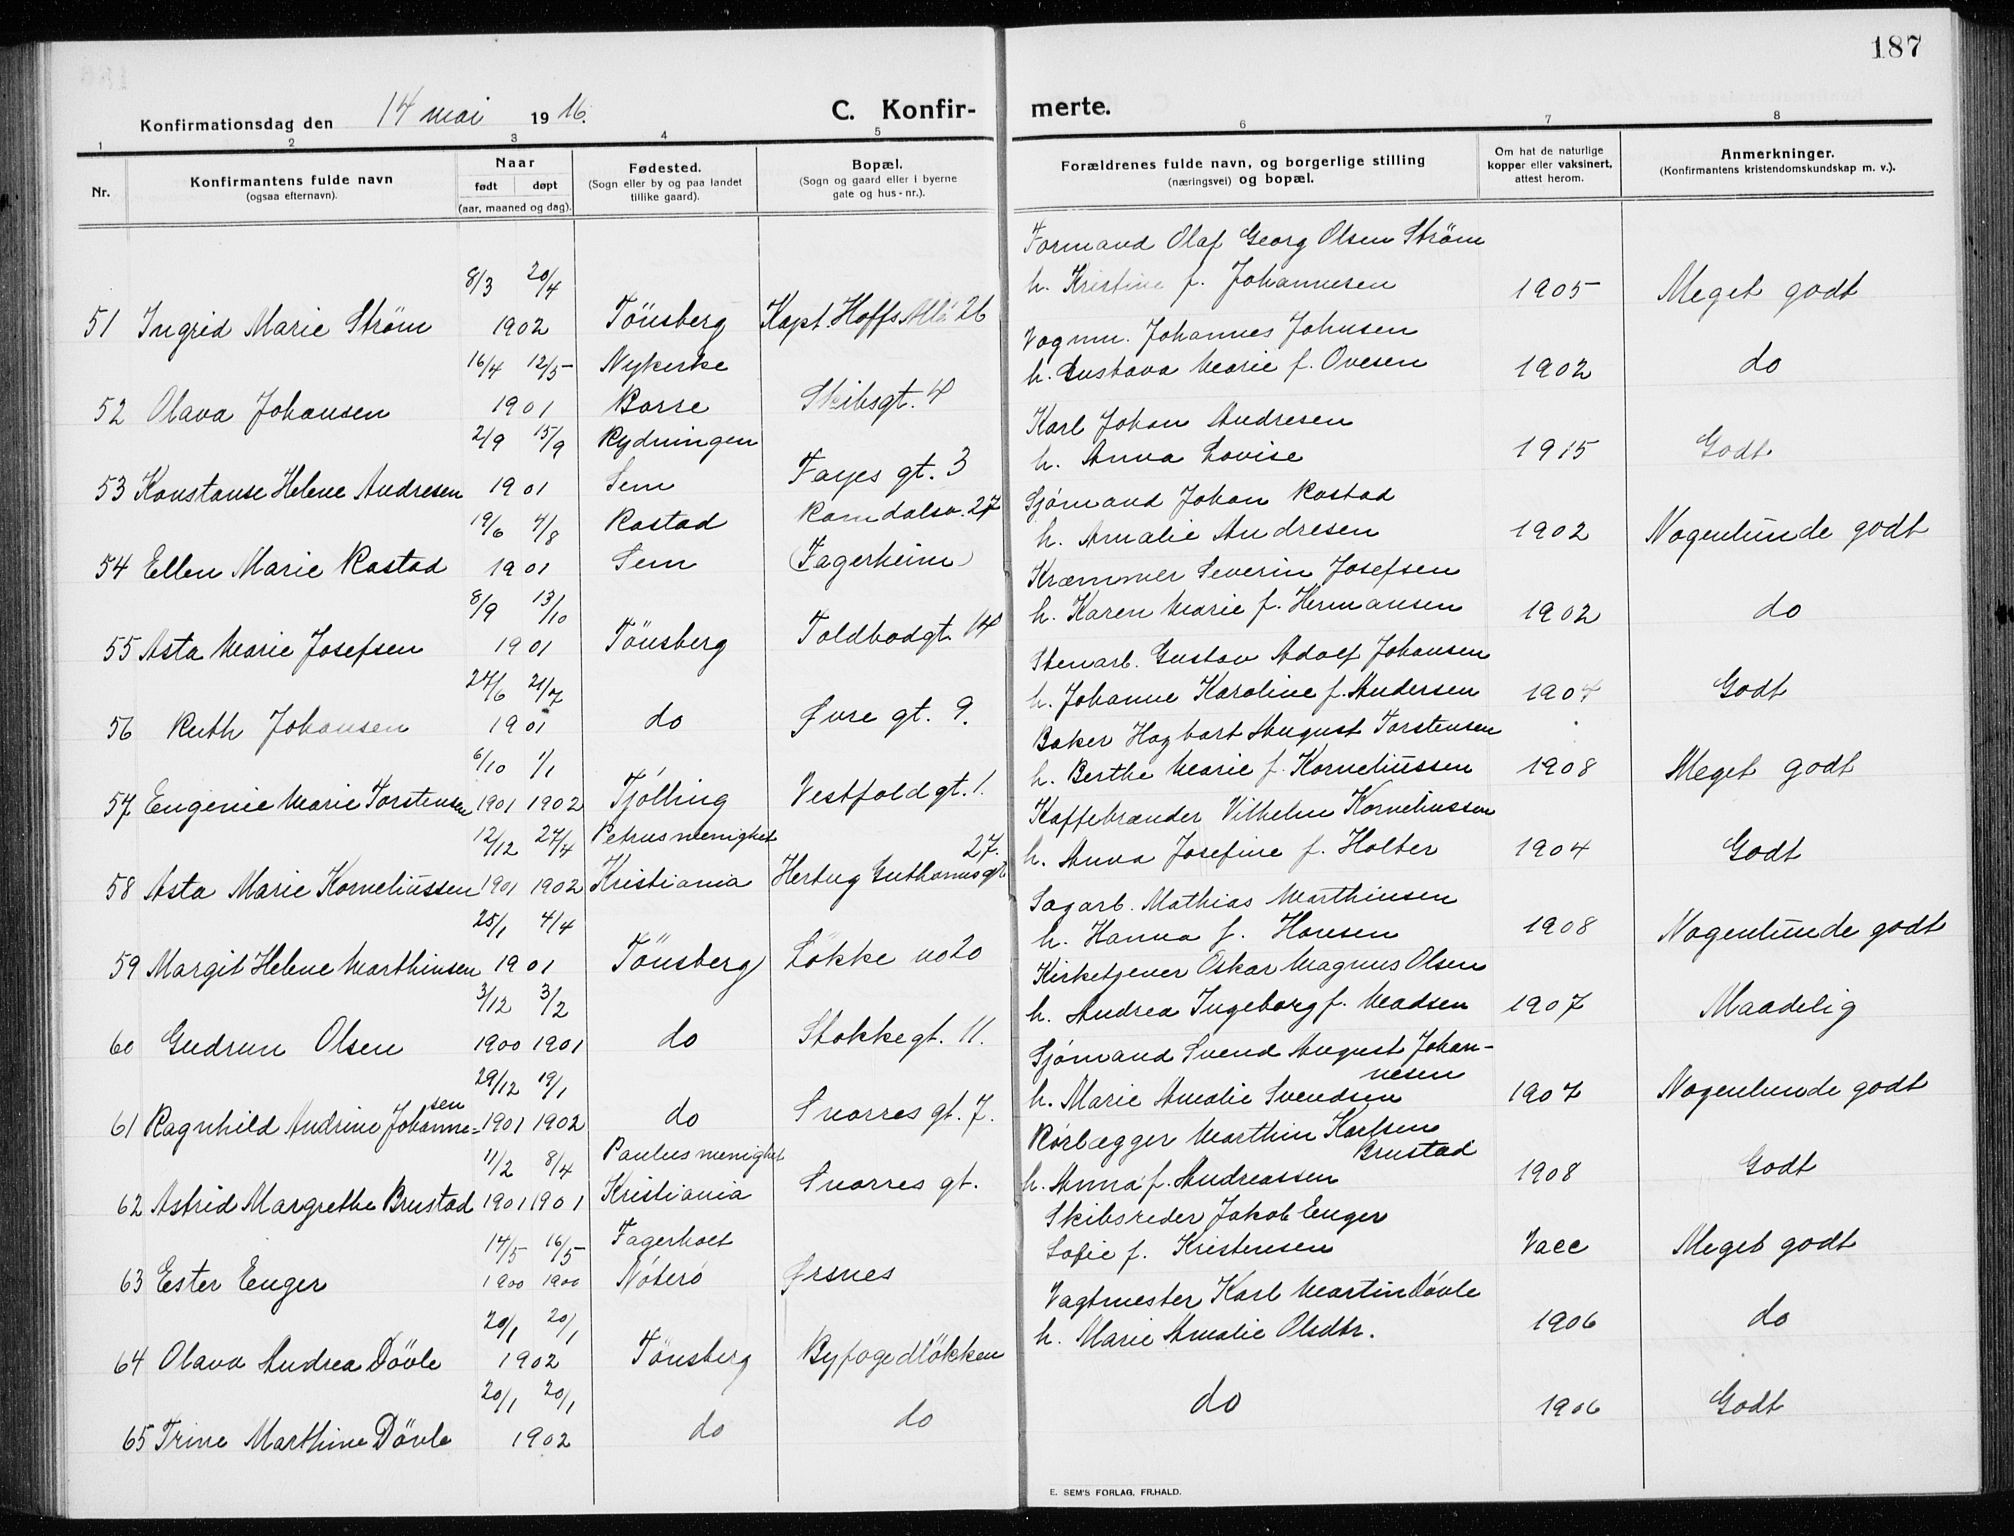 187
Konfirmationsdag den 14 mai 1916.
C. Konfir-merte.
1 2 3 4 5 6 7 8
Nr.
Konfirmantens fulde navn
(ogsaa efternavn).
Naar
født døpt
(aar, maaned og dag).
Fødested.
(Sogn eller by og paa landet
tillike gaard).
Bopæl.
(Sogn og gaard eller i byerne
gate og hus-nr.).
Forældrenes fulde navn, og borgerlige stilling
(næringsvei) og bopæl.
Om hat de naturlige
kopper eller vaksinert,
attest herom.
Anmerkninger.
(Konfirmantens kristendomskundskap m. v.).
Formand Olaf Georg Olsen Strøm
8/3 20/4 h. Kristine f. Johannesen 1905 Meget godt
51 Ingrid Marie Strøm 1902 Tönsberg Kapt. Hoffs Allé 26
Vognm. Johannes Johnsen
16/4 12/5 Nykerke h. Gustava Marie f. Ovesen 1902 do
52 Olava Johansen 1901 Borre Skibsgt. 4
Karl Johan Andresen
2/9 15/9 Rydningen h. Anna Lovise 1915 Godt
53 Konstanse Helene Andresen 1901 Sem Fayes gt. 3
Sjømand Johan Rostad
19/6 4/8 Rostad Ramdalsv. 27 h. Amalie Andresen 1902 Nogenlunde godt
54 Ellen Marie Rostad 1901 Sem (Fagerheim)
Kræmmer Severin Josefsen
8/9 13/10 h. Karen Marie f. Hermansen 1902 do
55 Asta Marie Josefsen 1901 Tönsberg Toldbodgt. 14
Stenarb. Gustav Adolf Johansen
24/6 21/7 h. Johanne Karoline f. Andersen 1904 Godt
56 Ruth Johansen 1901 do Øvre gt. 9.
Baker Hagbart August Torstensen
6/10 1/1 h. Berthe Marie f. Korneliussen 1908 Meget godt
57 Eugenie Marie Torstensen 1901 1902 Tjölling Vestfoldgt. 1.
Kaffebrænder Vilhelm Korneliussen
12/12 27/4 Petrus menighet h. Anna Josefine f. Holter 1904 Godt
58 Asta Marie Korneliussen 1901 1902 Kristiania Hertug Guthormsgt. 27.
Sagarb. Mathias Marthinsen
25/1 4/4 h. Hanna f. Hansen 1908 Nogenlunde godt
59 Margit Helene Marthinsen 1901 Tönsberg Lökke no 20
Kirketjener Oskar Magnus Olsen
3/12 3/2 h. Andrea Ingeborg f. Madsen 1907 Maadelig
60 Gudrun Olsen 1900 1901 do Stokkegt. 11.
Sjömand Svend August Johan-
nesen
29/12 19/1 h. Marie Amalie Svendsen 1907 Nogenlunde godt
61 Ragnhild Andrine Johanne-sen 1901 1902 do Snorres gt. 7.
Rörlægger Marthin Karlsen
Brustad
11/2 8/4 Paulus menighet h. Anna f. Andreassen 1908 Godt
62 Astrid Margrethe Brustad 1901 1901 Kristiania Snorres gt.
Skibsreder Jakob Enger
14/5 16/5 Fagerholt Sofie f. Kristensen Vacc Meget godt
63 Ester Enger 1900 1900 Nöterö Ørsnes
Vagtmester Karl Martin Dövle
20/1 20/1 h. Marie Amalie Olsdtr. 1906 do
64 Olava Andrea Dövle 1902 Tönsberg Byfogedlökken
20/1 20/1 do 1906 Godt
65 Trine Marthine Dövle 1902 do do
E. SEM'S FORLAG, FR.HALD.